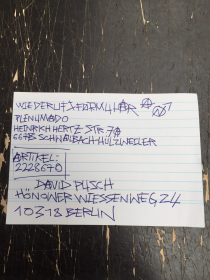 WIEDERUFSFORMULAR
PLENUMADO
HEINRICH HERTZ STR 7A
6678 SCHWALBACH-HÜLZWEILER
ARTIKEL:
2228670
DAVID PUSCH
HÖNOWER WIESSENWEG 24
10318 BERLIN